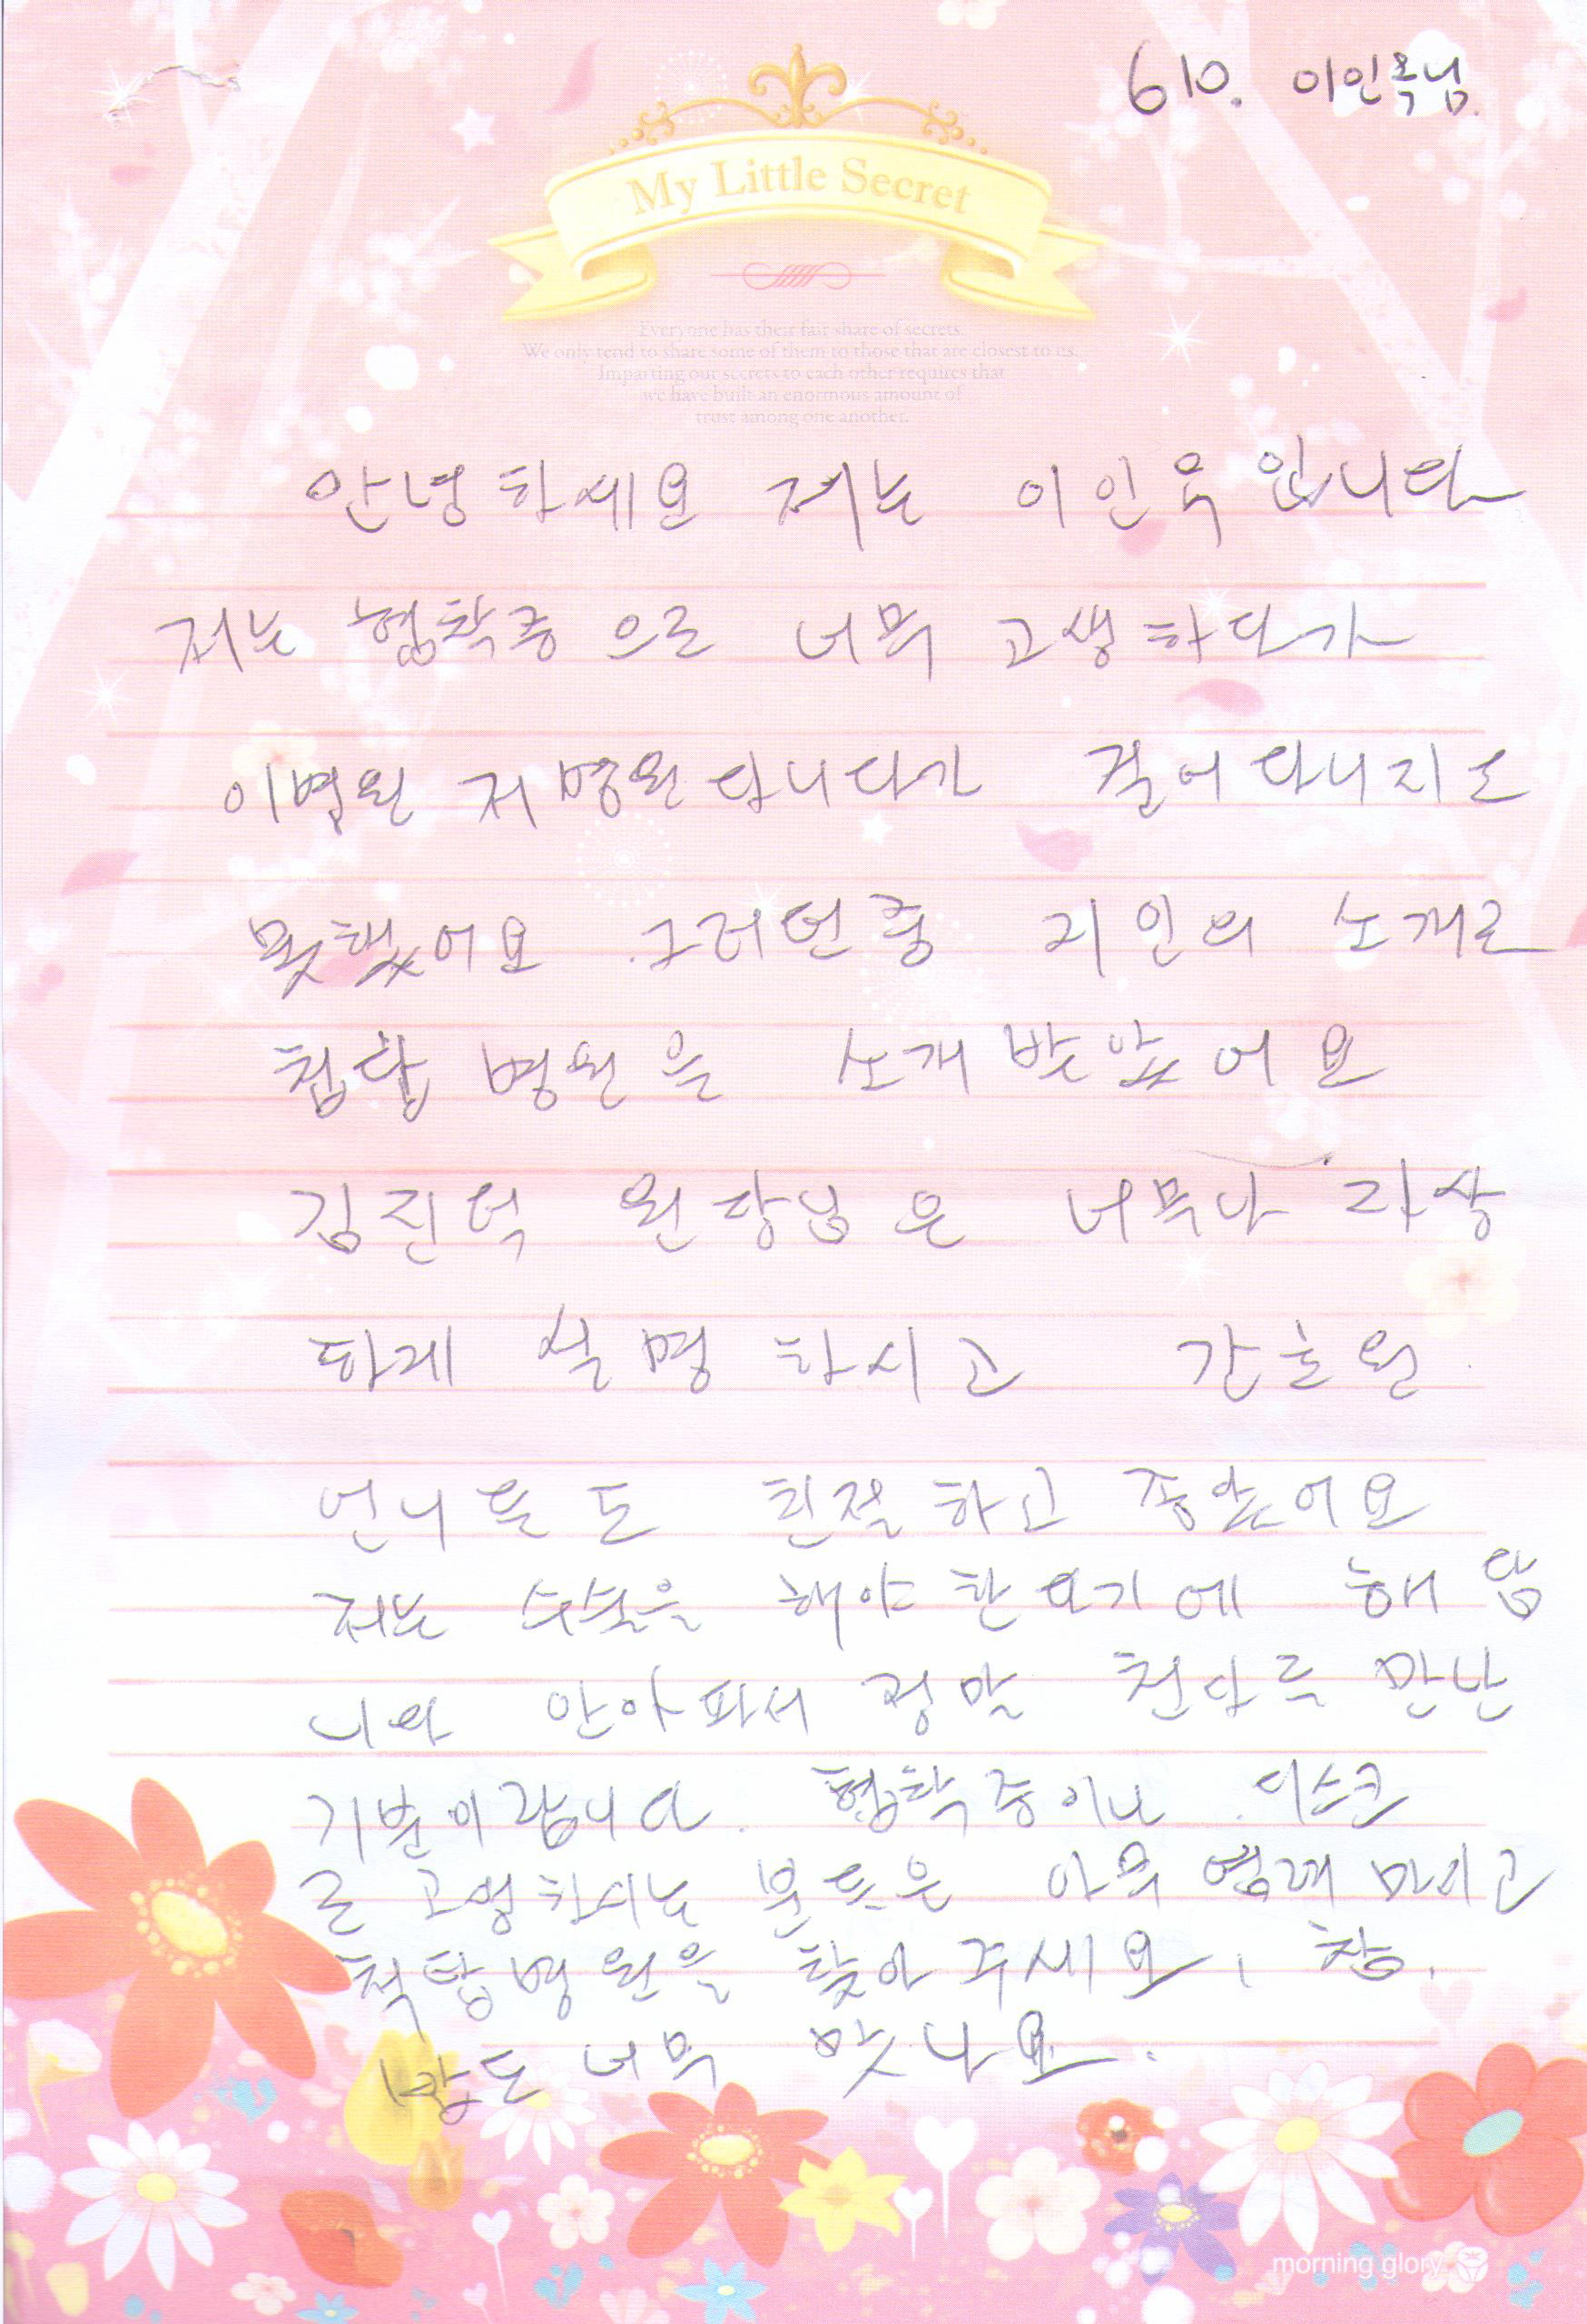 610. 이인옥님.
My Little Secret
Everyone has their fair share of secrets.
We only tend to share some of them to those that are closest to us.
Imparting our secrets to each other requires that
we have built an enormous amount of
trust among one another.
안녕하세요 저는 이인옥 입니다
저는 협착증 으로 너무 고생하다가
이병원 저병원 다니다가 걸어다니지도
못했어요 그러던중 지인의 소개로
첨단 병원을 소개 받았어요
김진덕 원장님은 너무나 자상
하게 설명 하시고 간호원
언니들도 친절하고 좋았어요
저는 수술을 해야 한다기에 해
니와 안아파서 정말 천당을 만난
기분이랍니다. 협착증이나 디스크
로 고생하시는 분들은 아무 염려 마시고
척탑병원을 찾아 주세요, 참.
밥도 너무 맛나요.
morning glory